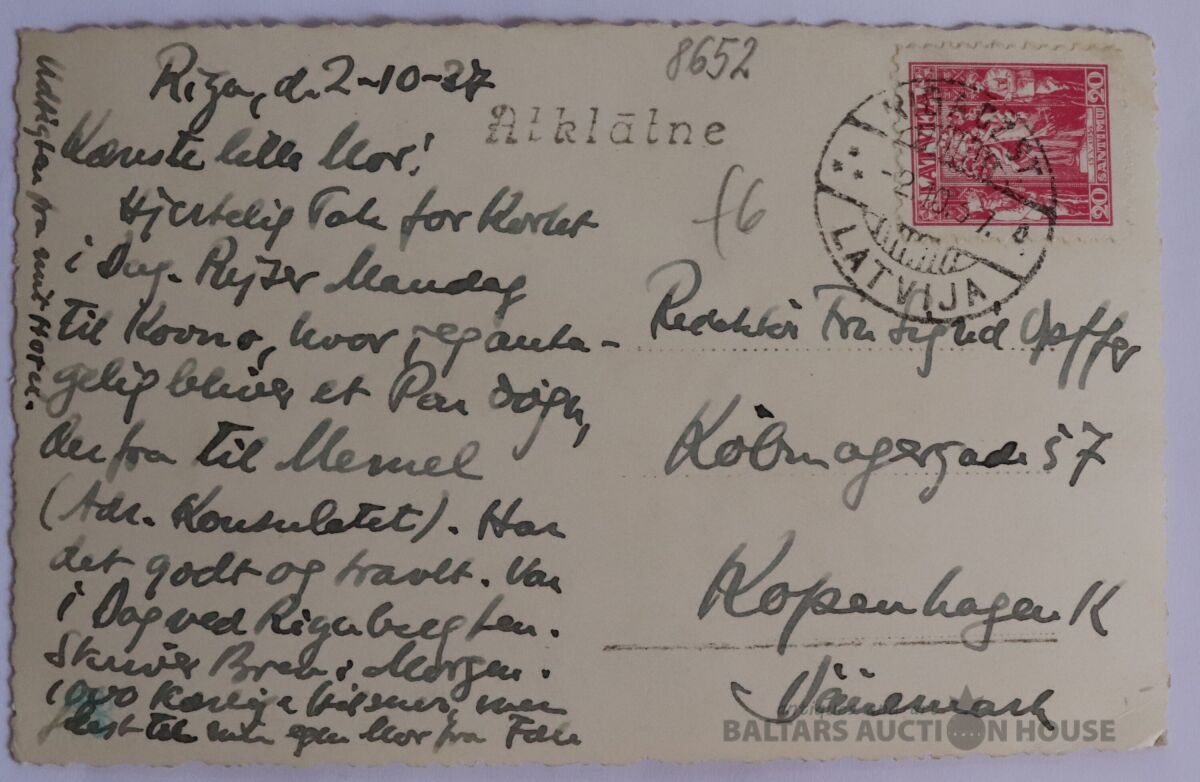 8652
Riga, d. 2-10-37
Atklātne
Kæreste lille Mor!
Hjertelig Tak for Kortet
i Dag. Rejser Mandag
til Kovno, hvor jeg anta-
gelig bliver et Par Døgn,
derfra til Memel
(Adr. Konsulatet). Har
det godt og travlt. Var
i Dag ved Rigabugten.
Skriver Brev i Morgen.
1000 Kærlige Hilsner, men
mest til min egen Mor fra
Udsigten fra mit Hotel.
f6
LATVIJA
20 SANTIMU 20
LATVIJA
Redaktør Fru Sigrid Opffer
Købmagergade 57
Kopenhagen K
Dänemark
BALTARS AUCTION HOUSE